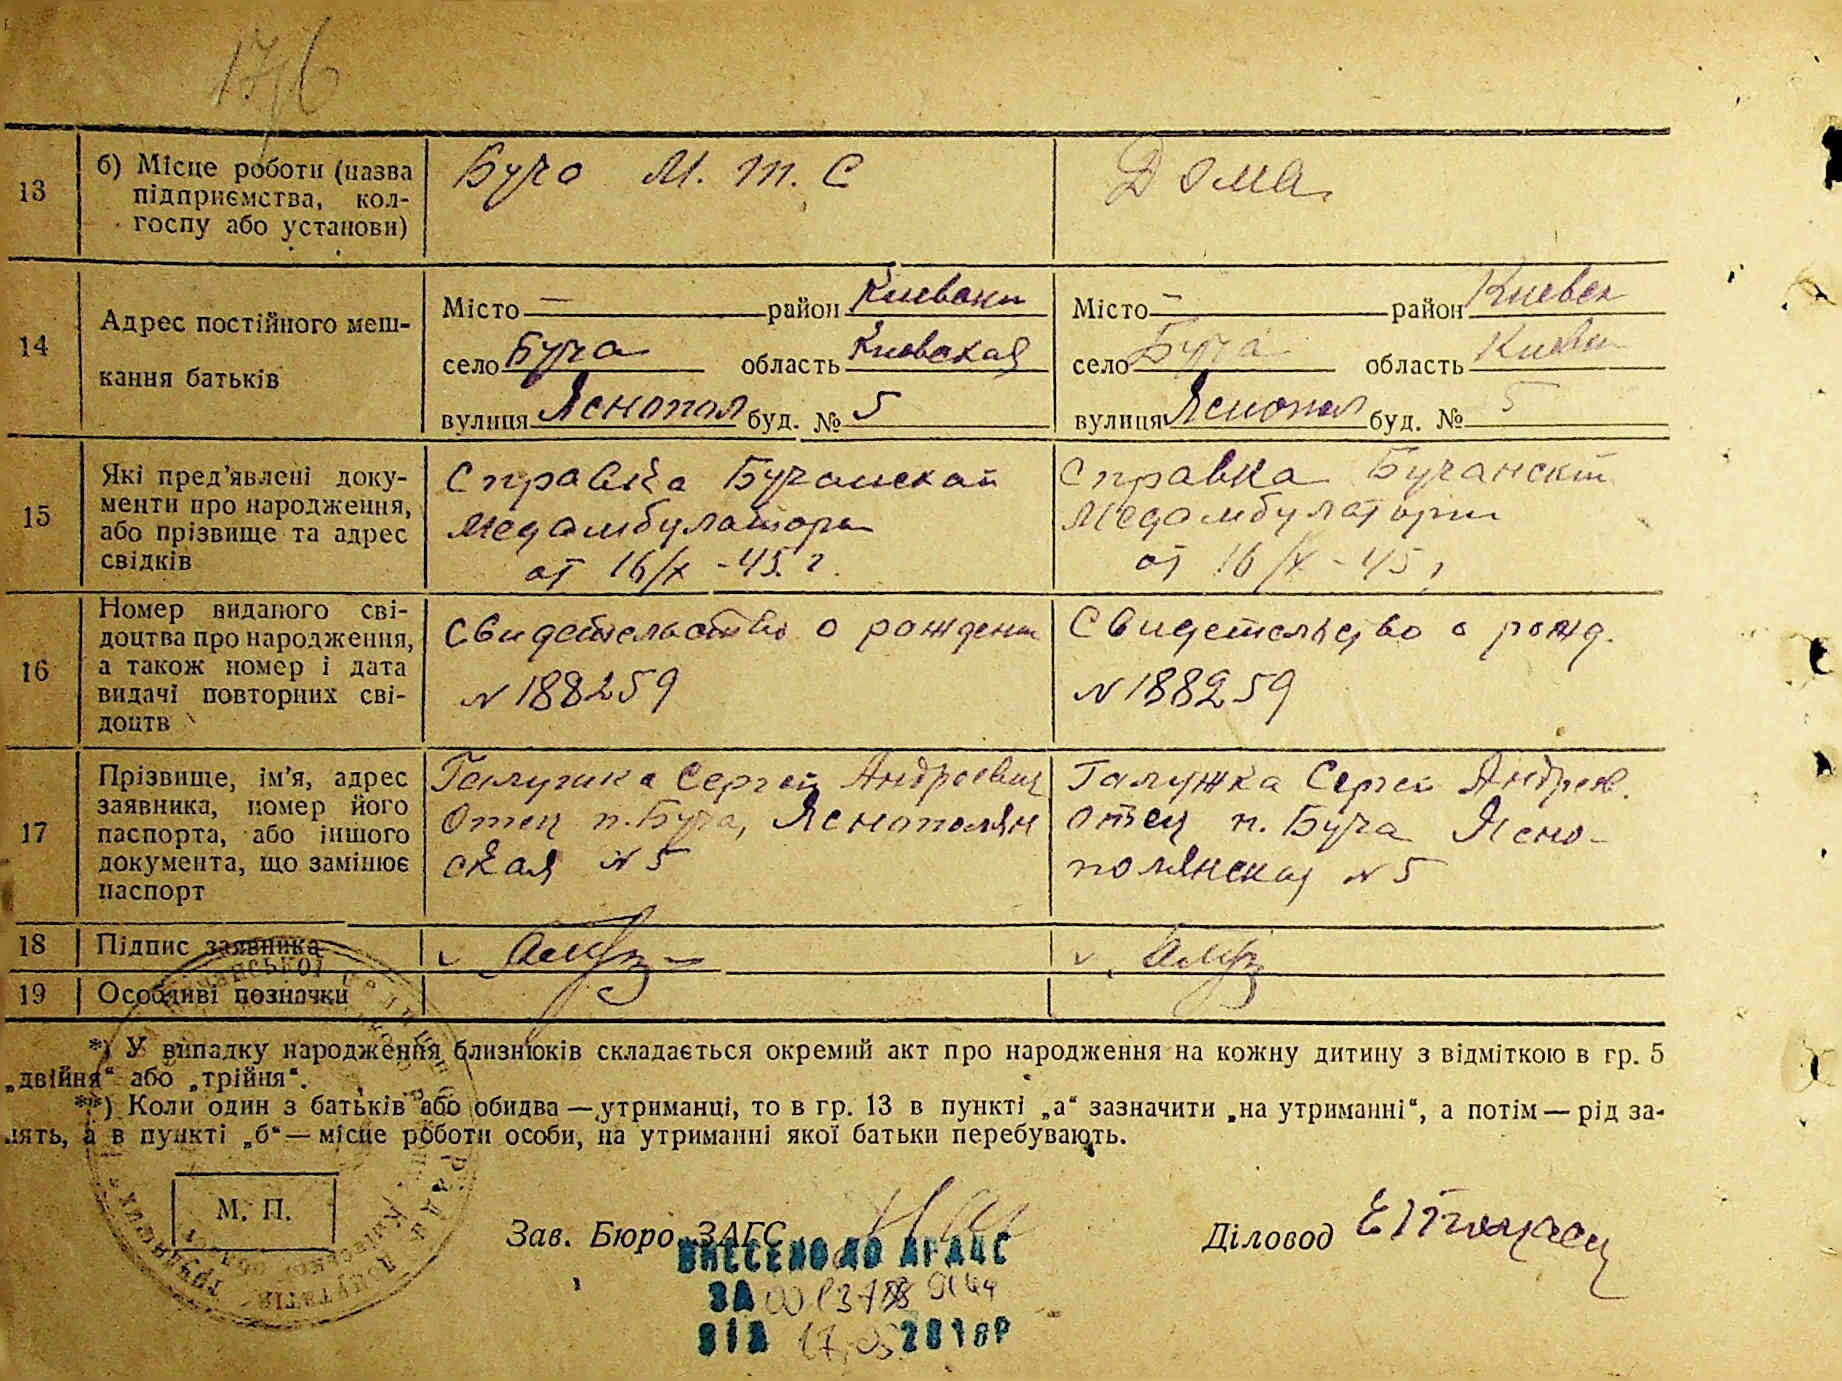 176
13
б) Місце роботи (назва
підприємства, кол-
госпу або установи)
Буча М. т. С
Дома
14
Адрес постійного меш-
кання батьків
Місто — район Киевски
село Буча область Киевская
вулиця Яснопол буд. № 5
Місто — район Киевск
село Буча область Киевск
вулиця Яснопол буд. № 5
15
Які пред’явлені доку-
менти про народження,
або прізвище та адрес
свідків
Справка Бучанской
Медамбулатори
от 16/X -45. г.
Справка Бучанскт
Медамбулатории
от 16/X - 45 г
16
Номер виданого сві-
доцтва про народження,
а також номер і дата
видачі повторних сві-
доцтв
Свидетельство о рождени
N 188259
Свидетельство о рожд.
N 188259
17
Прізвище, ім’я, адрес
заявника, номер його
паспорта, або іншого
документа, що замінює
паспорт
Галужка Сергей Андреевич
Отец п. Буча, Яснополян
ская N 5
Галужка Сергей Андреев.
отец п. Буча Ясно-
полянская N 5
18
Підпис заявника
19
Особливі позначки
*) У випадку народження близнюків складається окремий акт про народження на кожну дитину з відміткою в гр. 5
„двійня“ або „трійня“.
**) Коли один з батьків або обидва — утриманці, то в гр. 13 в пункті „а“ зазначити „на утриманні“, а потім — рід за-
нять, а в пункті „б“ — місце роботи особи, на утриманні якої батьки перебувають.
М. П.
Зав. Бюро ЗАГС
Діловод
ВНЕСЕНО ДО ДРАЦС
ЗА
ВІД 17.05. 2018Р